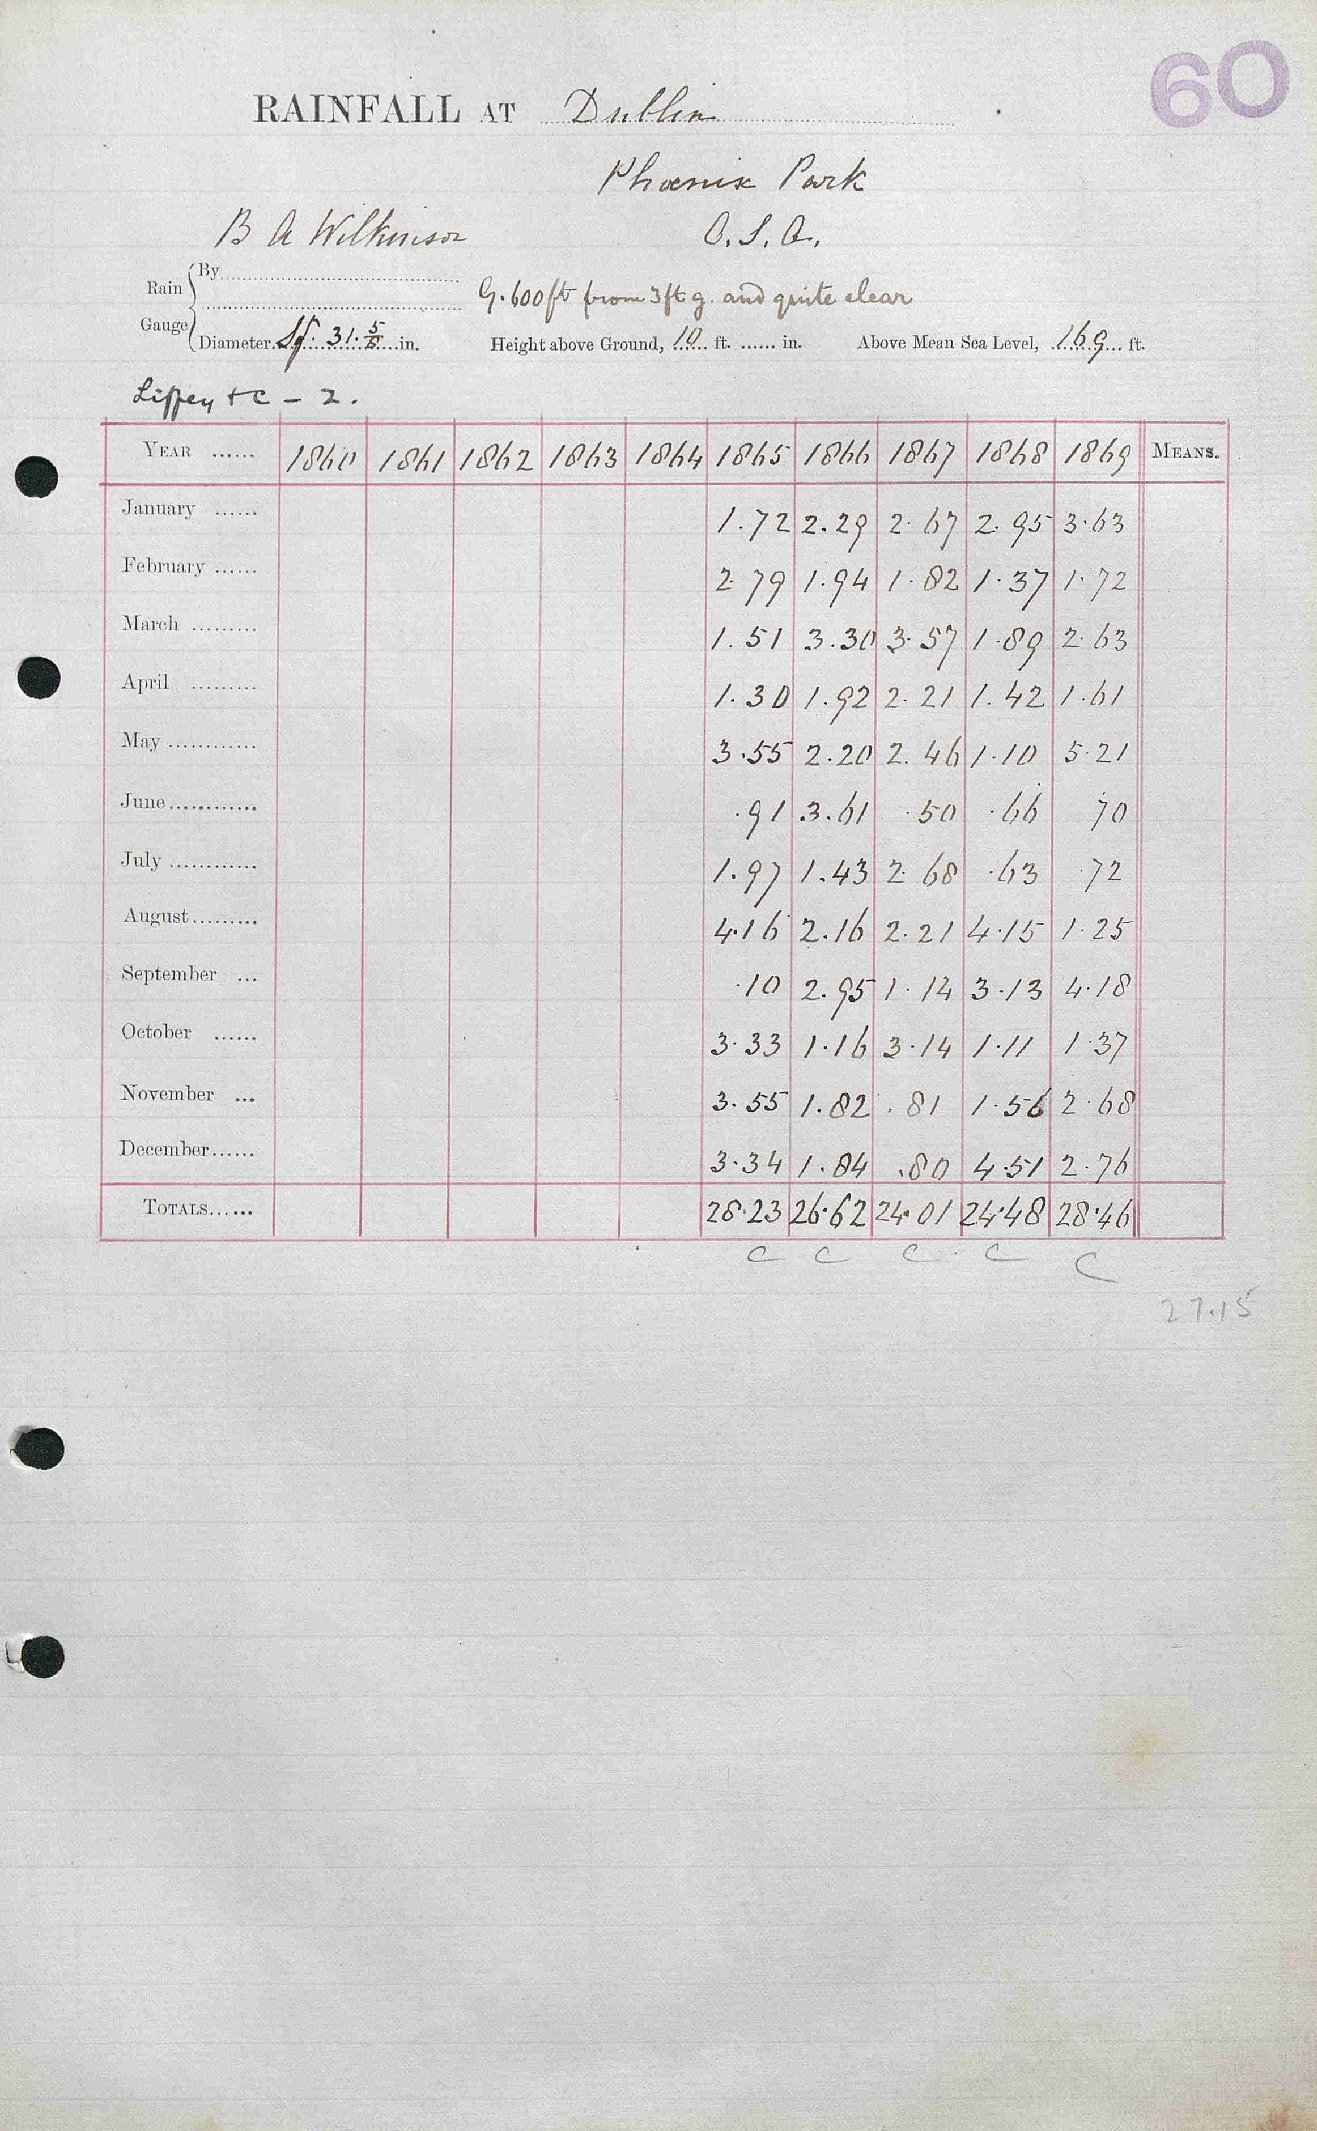 60
RAINFALL AT Dublin
Phoenix Park
B A Wilkinson O.S.O.
Rain Gauge
By
G. 600 ft from 3 ft g. and quite clear
Diameter Sq. 31. in. Height above Ground, 10 ft. ...... in. Above Mean Sea Level, 169 ft.
Liffey &c - 2.
YEAR ...... 1860 1861 1862 1863 1864 1865 1866 1867 1868 1869 MEANS.
January ...... 1.72 2.29 2.67 2.95 3.63
February ...... 2.79 1.94 1.82 1.37 1.72
March ......... 1.51 3.30 3.57 1.89 2.63
April ......... 1.30 1.92 2.21 1.42 1.61
May ............ 3.55 2.20 2.46 1.10 5.21
June ............ .91 3.61 .50 .66 70
July ............ 1.97 1.43 2.68 .63 .72
August ......... 4.16 2.16 2.21 4.15 1.25
September ... .10 2.95 1.14 3.13 4.18
October ...... 3.33 1.16 3.14 1.11 1.37
November ... 3.55 1.82 .81 1.56 2.68
December ...... 3.34 1.84 .80 4.51 2.76
TOTALS ...... 28.23 26.62 24.01 24.48 28.46
C C C C C
27.15